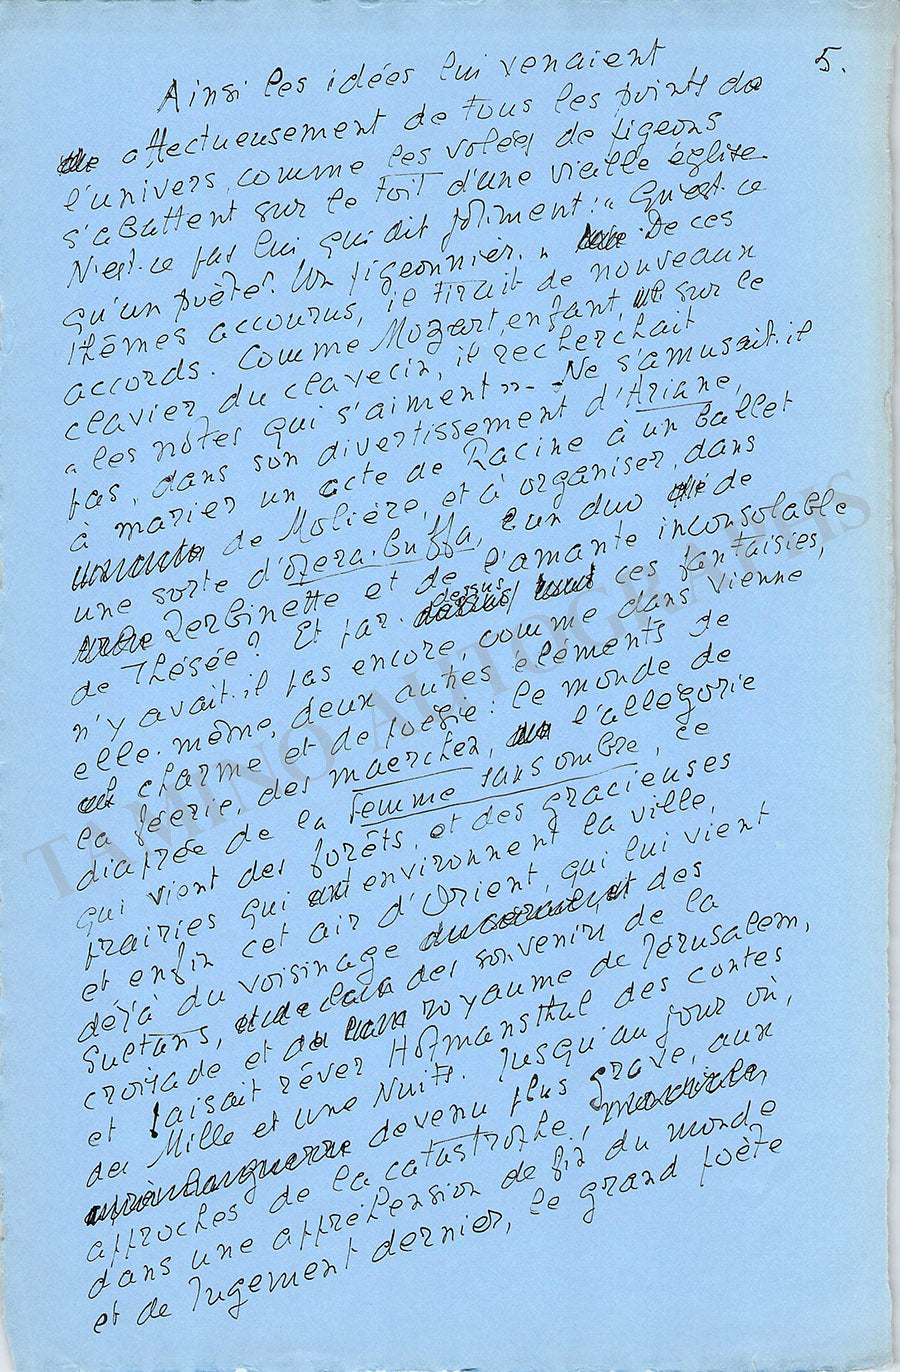 5.
Ainsi les idées lui venaient
affectueusement de tous les points de
l'univers, comme les volées de pigeons
s'abattent sur le toit d'une vieille église.
N'est-ce pas lui qui dit joliment : " Qu'est-ce
qu'un poète ? Un pigeonnier. " De ces
thèmes accourus, il tirait de nouveaux
accords. Comme Mozart, enfant, sur le
clavier du clavecin, il recherchait
" les notes qui s'aiment " - Ne s'amusait-il
pas, dans son divertissement d'Ariane,
à marier un acte de Racine à un ballet
de Molière, et à organiser, dans
une sorte d'opera-buffa, un duo de
Zerbinette et de l'amante inconsolable
de Thésée ? Et par dessus ces fantaisies,
n'y avait-il pas encore, comme dans Vienne
elle-même, deux autres éléments de
charme et de poésie : le monde de
la féerie, des maerchen, l'allégorie
diaprée de la femme sans ombre, ce
qui vient des forêts, et des gracieuses
prairies qui environnent la ville,
et enfin cet air d'Orient, qui lui vient
déjà du voisinage des
Sultans, des souvenirs de la
croisade et du royaume de Jérusalem,
et faisait rêver Hofmansthal des contes
des Mille et une Nuits. Jusqu'au jour où,
devenu plus grave, aux
approches de la catastrophe,
dans une appréhension de fin du monde
et de Jugement dernier, le grand poète
TAMINO AUTOGRAPHS